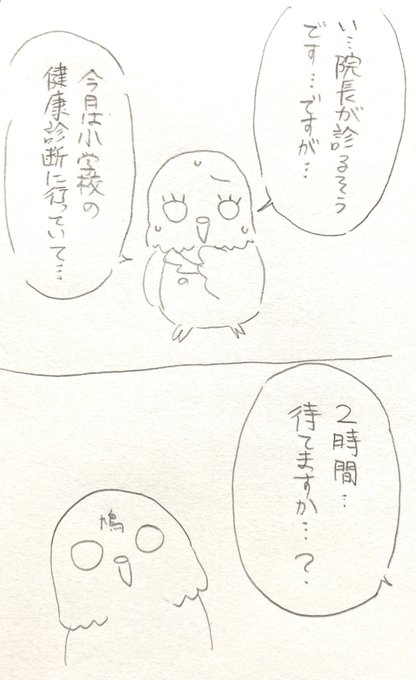 い…院長が診るそう
です…ですが…
今日は小学校の
健康診断に行っていて…
２時間…
待てますか…？
鳩